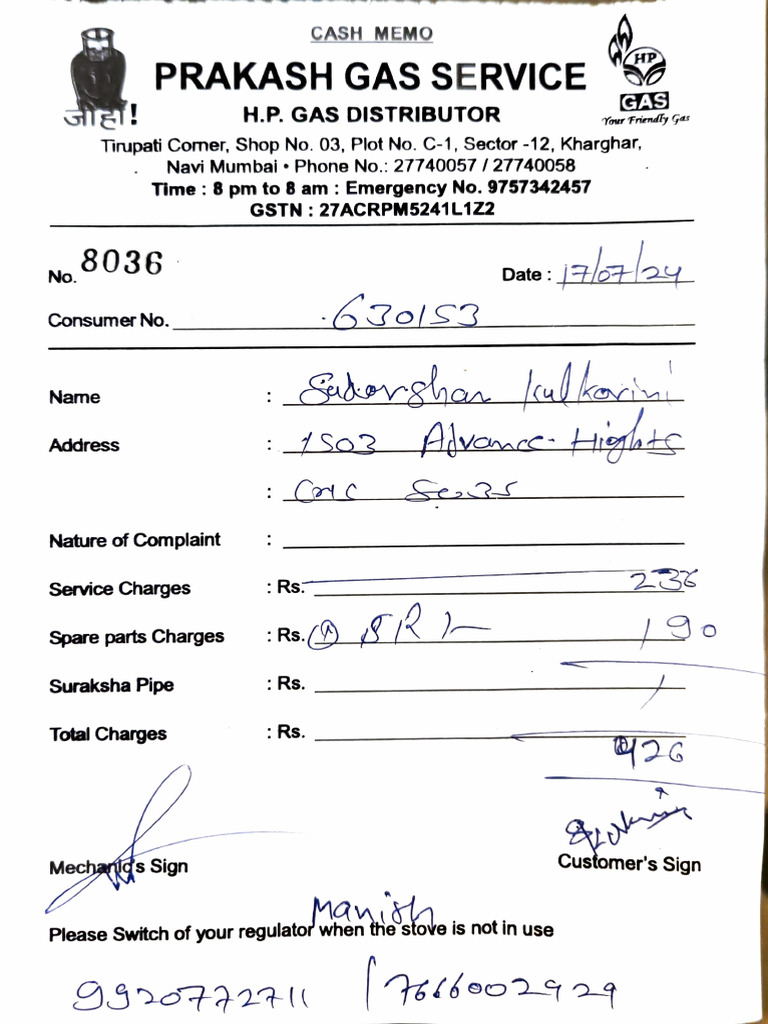 CASH MEMO
PRAKASH GAS SERVICE
H.P. GAS DISTRIBUTOR
जी हाँ!
HP
GAS
Your Friendly Gas
Tirupati Corner, Shop No. 03, Plot No. C-1, Sector -12, Kharghar,
Navi Mumbai • Phone No.: 27740057 / 27740058
Time : 8 pm to 8 am : Emergency No. 9757342457
GSTN : 27ACRPM5241L1Z2
No. 8036 Date : 17/07/24
Consumer No. 630153
Name : Sudarshan Kulkarini
Address : 1503 Advance Hights
: Sec 35
Nature of Complaint :
Service Charges : Rs. 236
Spare parts Charges : Rs. 190
Suraksha Pipe : Rs. /
Total Charges : Rs. 426
Mechanic's Sign Customer's Sign
Manish
Please Switch of your regulator when the stove is not in use
9920772711 / 7666002929